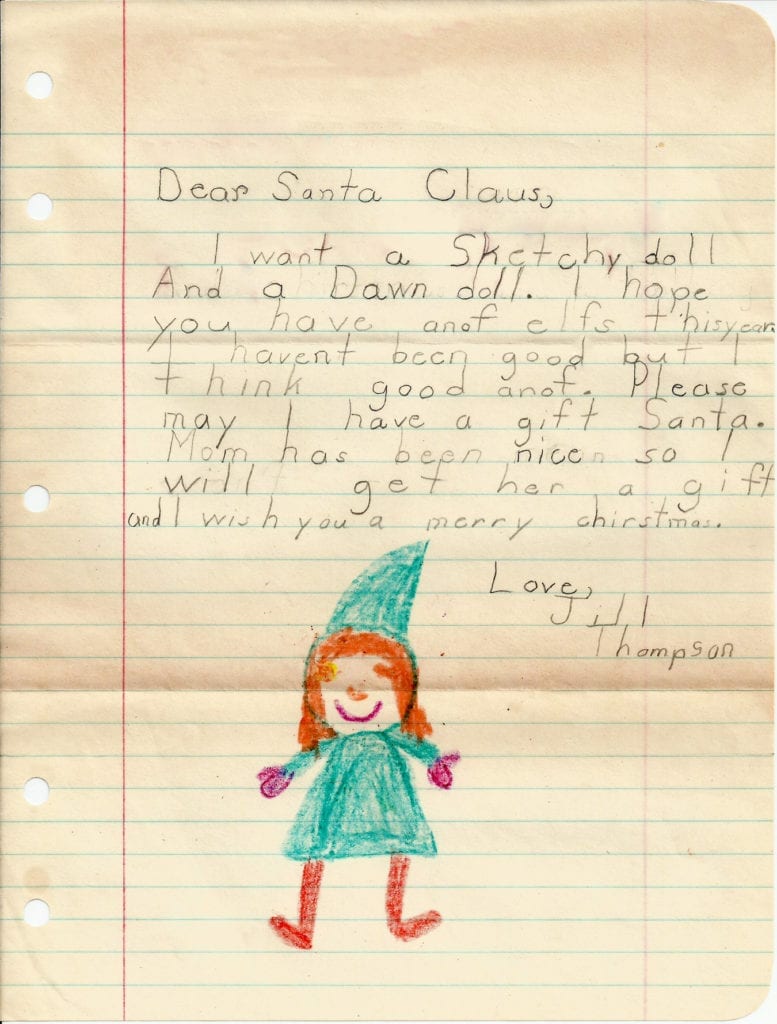 Dear Santa Claus,
I want a Sketchy doll
And a Dawn doll. I hope
you have anof elfs thisyear.
I havent been good but I
think good anof. Please
may I have a gift Santa.
Mom has been nice so I
will get her a gift
and I wish you a merry chirstmas.
Love,
Jill
Thompson